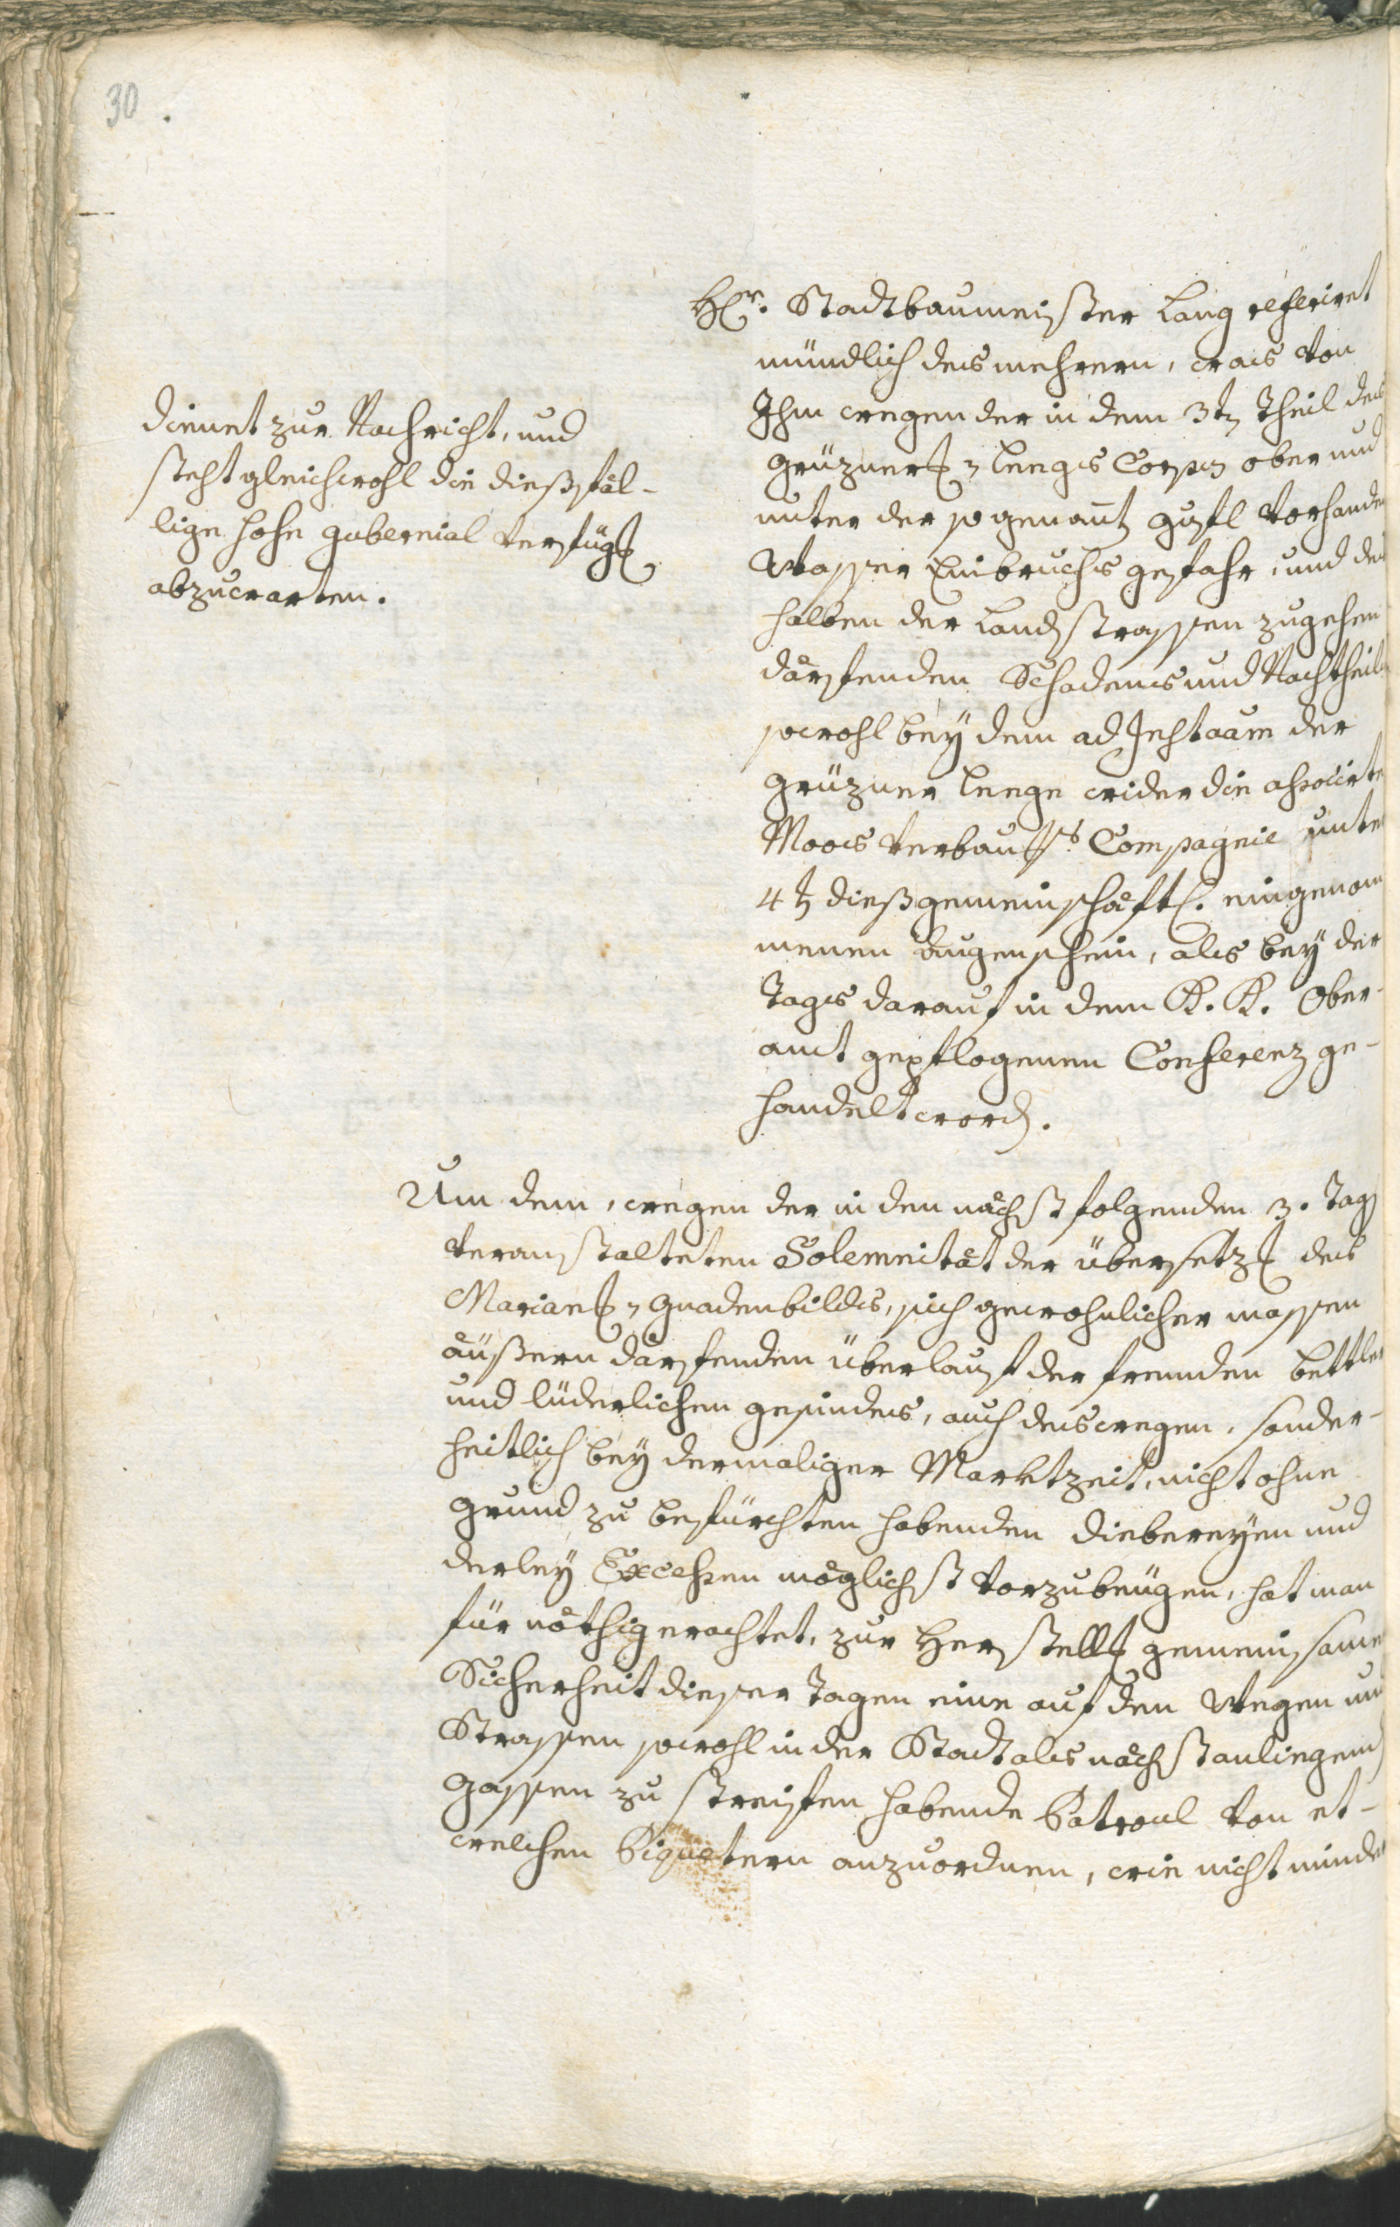 30
Hr. Stadtbaumeister Lang referiret
mündlich des mehrern, was von
Ihm wegen der in dem 3tn Theil des
Grüzner Leegs Corps ober und
unter der so genantn Gysl vorhande
Wasser Einbruchs gefahr, und des
halben der Landstrassen zugehen
därfenden Schadens und Nachtheils
sowohl bey dem ad Instaam der
Grüzner Leege wider die associrte
Moos Verbauungs Compagnie unte
4tn dieß gemeinschäftl. eingenom
menen Augenschein, als bey der
Tags darauf in dem K. K. Ober-
amt gepflogenen Conferenz ge-
handelt word.
dienet zur Nachricht, und
steht gleichwohl die dießfäl-
lige hohe Gubernial Verfüg
abzuwarten.
Um dem, wegen der in den nächst folgenden 3. Tag
veranstalteten Solemnität der übersetzung des
Marian Gnadenbilds, sich gewohnlicher massen
äußern därfenden überlauf der fremden bettle
und lüderlichen gesindes, auch deswegen, sonder-
heitlich bey dermaliger Marktzeit, nicht ohne
Grund zu befürchten habenden diebereyen und
derley Excessen möglichst vorzubeügen, hat man
für nöthig erachtet, zur Herstellung gemeinsame
Sicherheit dieser Tagen eine auf den Weegen und
Strassen sowohl in der Stadt als nächstanliegend
Gassen zu streiffen habende Patroul von et-
welchen Piquetern anzuordnen, wie nicht minde